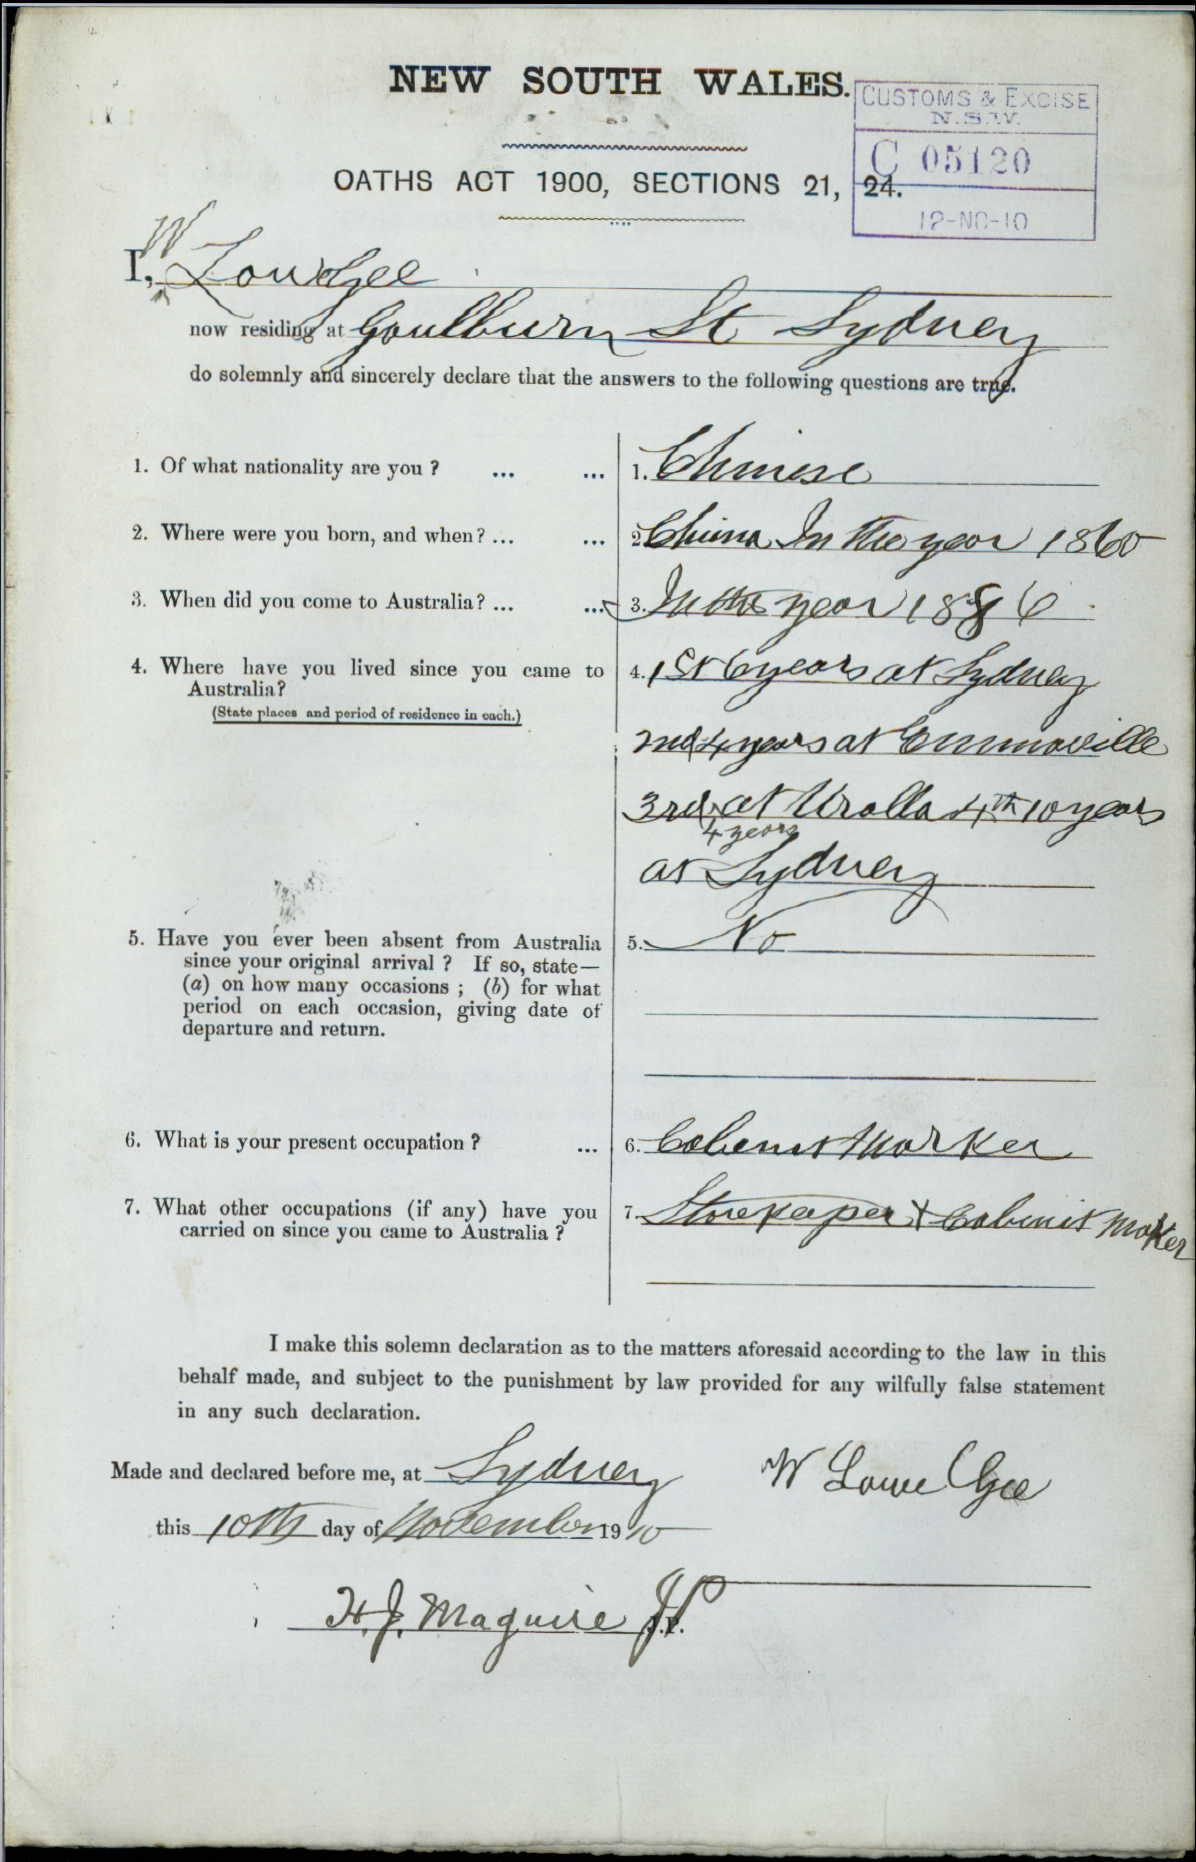 NEW SOUTH WALES.
CUSTOMS & EXCISE
N.S.W.
C 05120
12-NO-10
OATHS ACT 1900, SECTIONS 21, 24.
I, W Low Gee
now residing at Goulburn St Sydney
do solemnly and sincerely declare that the answers to the following questions are true.
1. Of what nationality are you ? ... ... 1. Chinese
2. Where were you born, and when? ... ... 2. China In the year 1860
3. When did you come to Australia? ... ... 3. In the year 1886
4. Where have you lived since you came to 4. 1st 6 years at Sydney
Australia?
(State places and period of residence in each.)
2nd 4 years at Emmaville
3rd at Uralla 4th 10 years
4 years
at Sydney
5. Have you ever been absent from Australia 5. No
since your original arrival ? If so, state—
(a) on how many occasions ; (b) for what
period on each occasion, giving date of
departure and return.
6. What is your present occupation ? ... 6. Cabinet Marker
7. What other occupations (if any) have you 7. Storekeeper & Cabinit Maker
carried on since you came to Australia ?
I make this solemn declaration as to the matters aforesaid according to the law in this
behalf made, and subject to the punishment by law provided for any wilfully false statement
in any such declaration.
Made and declared before me, at Sydney W Lowe Gee
this 10th day of November 1910
H. J. Maguire JP
J.P.